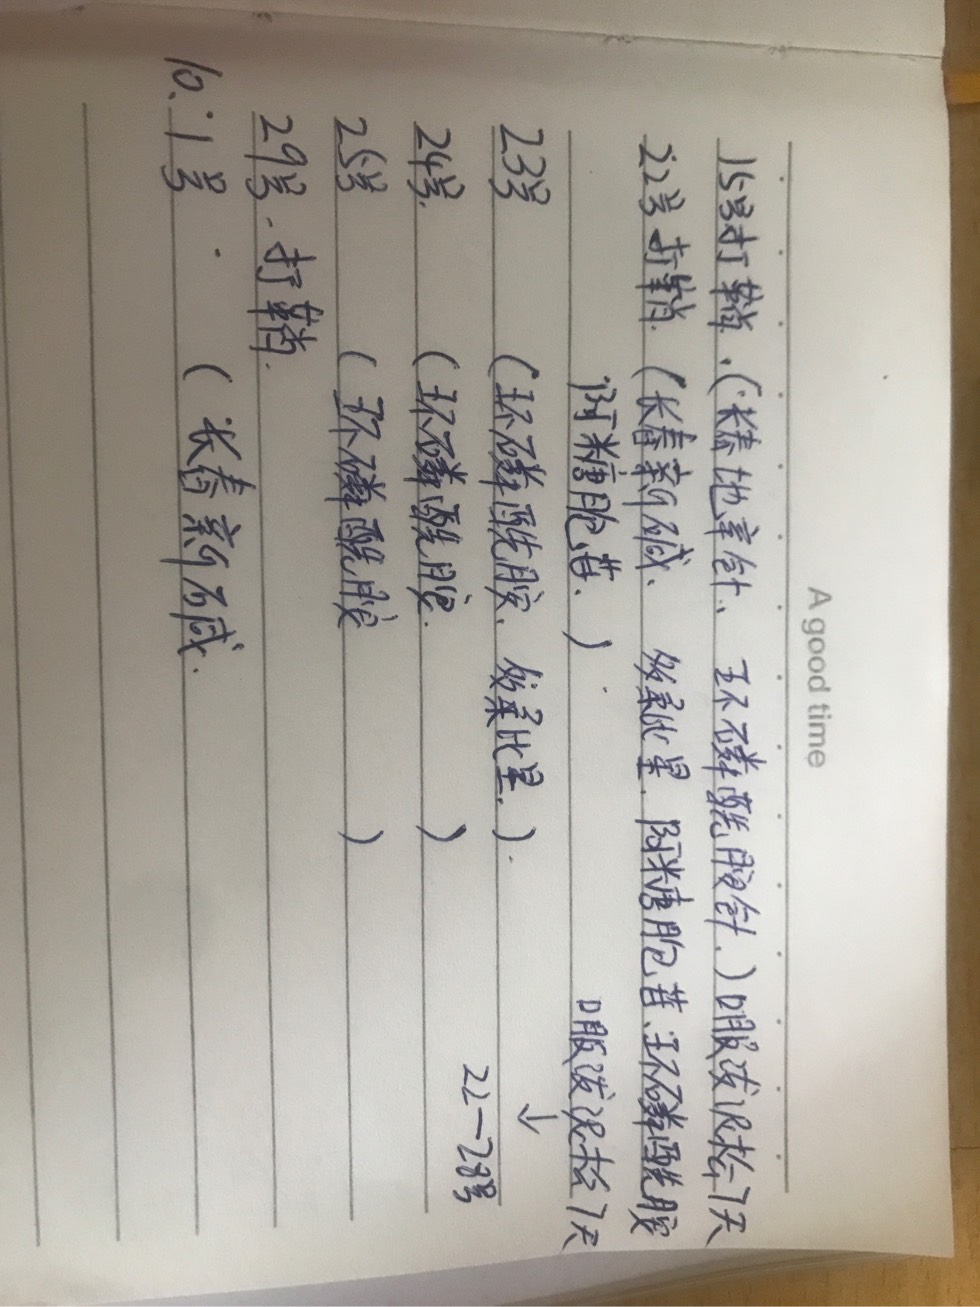 A good time
15号打鞘.(长春地辛针、环磷酰胺针、)口服泼泥松7天
22号打鞘.(长春新碱、多柔比星、阿米唐胞苷、环磷酰胺
阿米糖胞苷、) 口服泼泥松7天
23号 (环磷酰胺、多柔比星.). ↓
24号. (环磷酰胺. ) 22—28号
25号 (环磷酰胺 )
29号.打鞘.
10.1号 (长春新碱.